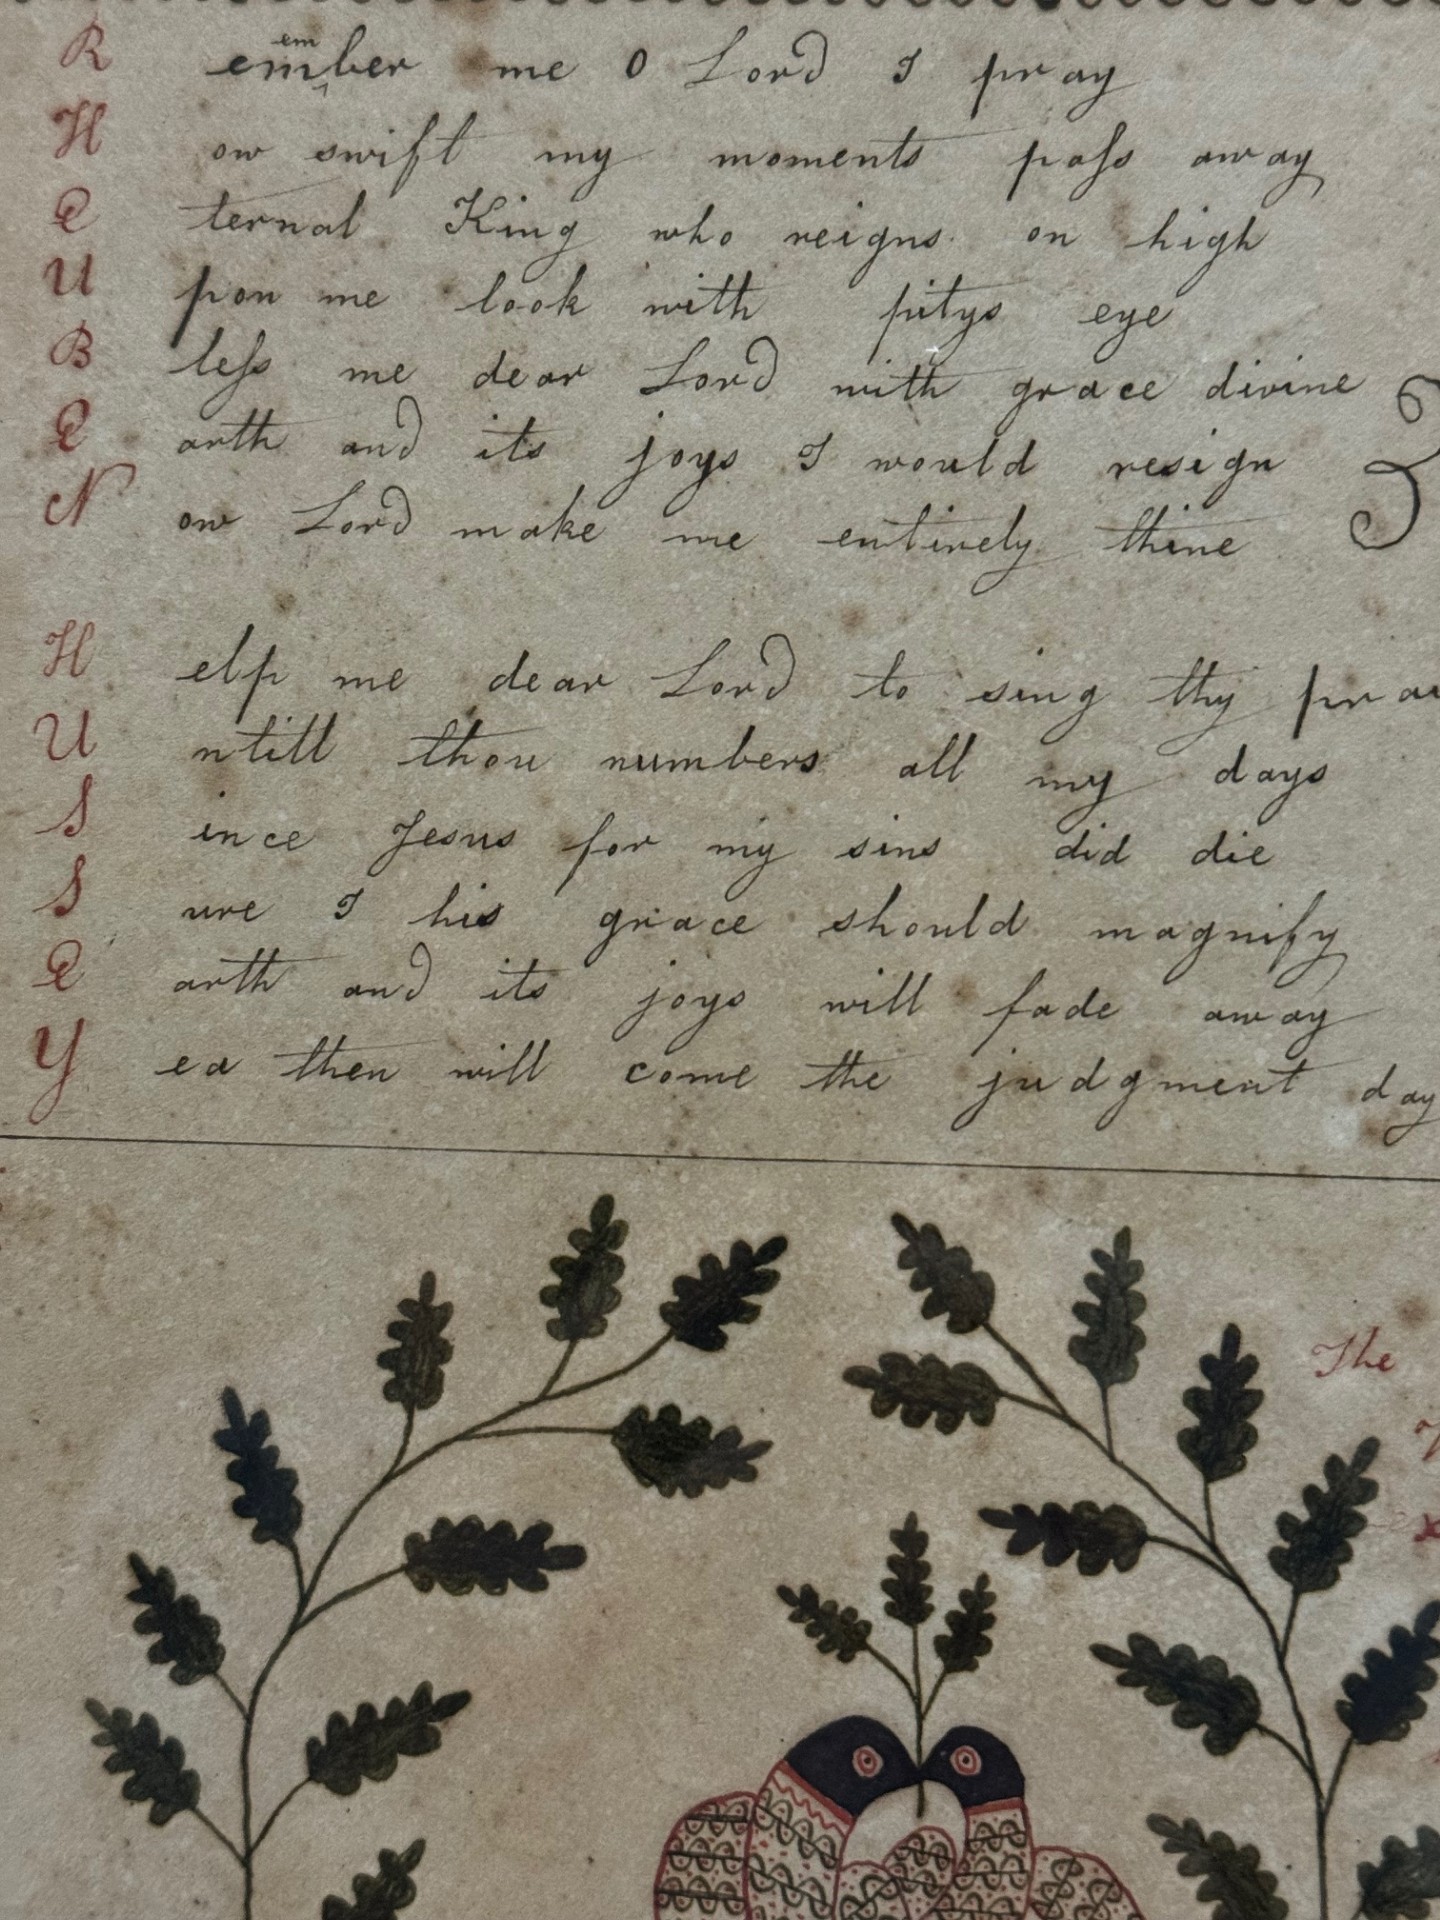 Remember me O Lord I pray
How swift my moments pass away
Eternal King who reigns on high
Upon me look with pitys eye
Bless me dear Lord with grace divine
Earth and its joys I would resign
Now Lord make me entirely thine
Help me dear Lord to sing thy
Untill thou numbers all my days
Since Jesus for my sins did die
Sure I his grace should magnify
Earth and its joys will fade away
Yea then will come the judgment day
The